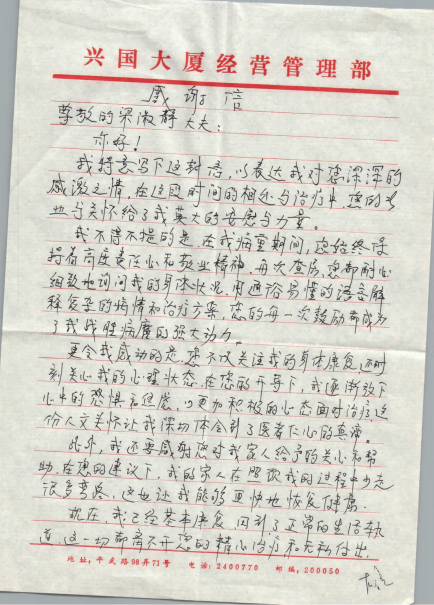 兴国大厦经营管理部
感谢信
尊敬的梁淑静大夫:
你好!
我特意写下这封信,以表达我对您深深的
感激之情,在这段时间的相处与治疗中,您的专
业与关怀给了我莫大的安慰与力量。
我不得不提的是,在我病重期间,您始终保
持着高度责任心和敬业精神,每次查房,您都耐心
细致地询问我的身体状况,用通俗易懂的语言解
释复杂的病情和治疗方案,您的每一次鼓励都成为
了我战胜病魔的强大动力。
更令我感动的是,您不仅关注我的身体康复,还时
刻关心我的心理状态,在您的开导下,我逐渐放下
心中的恐惧和焦虑,以更加积极的心态面对治疗,这
份人文关怀让我深切体会到了医者仁心的真谛。
此外,我还要感谢您对我家人给予的关心和帮
助,在您的建议下,我的家人在照顾我的过程中少走
很多弯路,这也让我能够更快地恢复健康。
现在,我已经基本康复,回到了正常的生活轨
道,这一切都离不开您的精心治疗和无私付出。
地址:平武路98弄71号 电话:2400770 邮编:200050